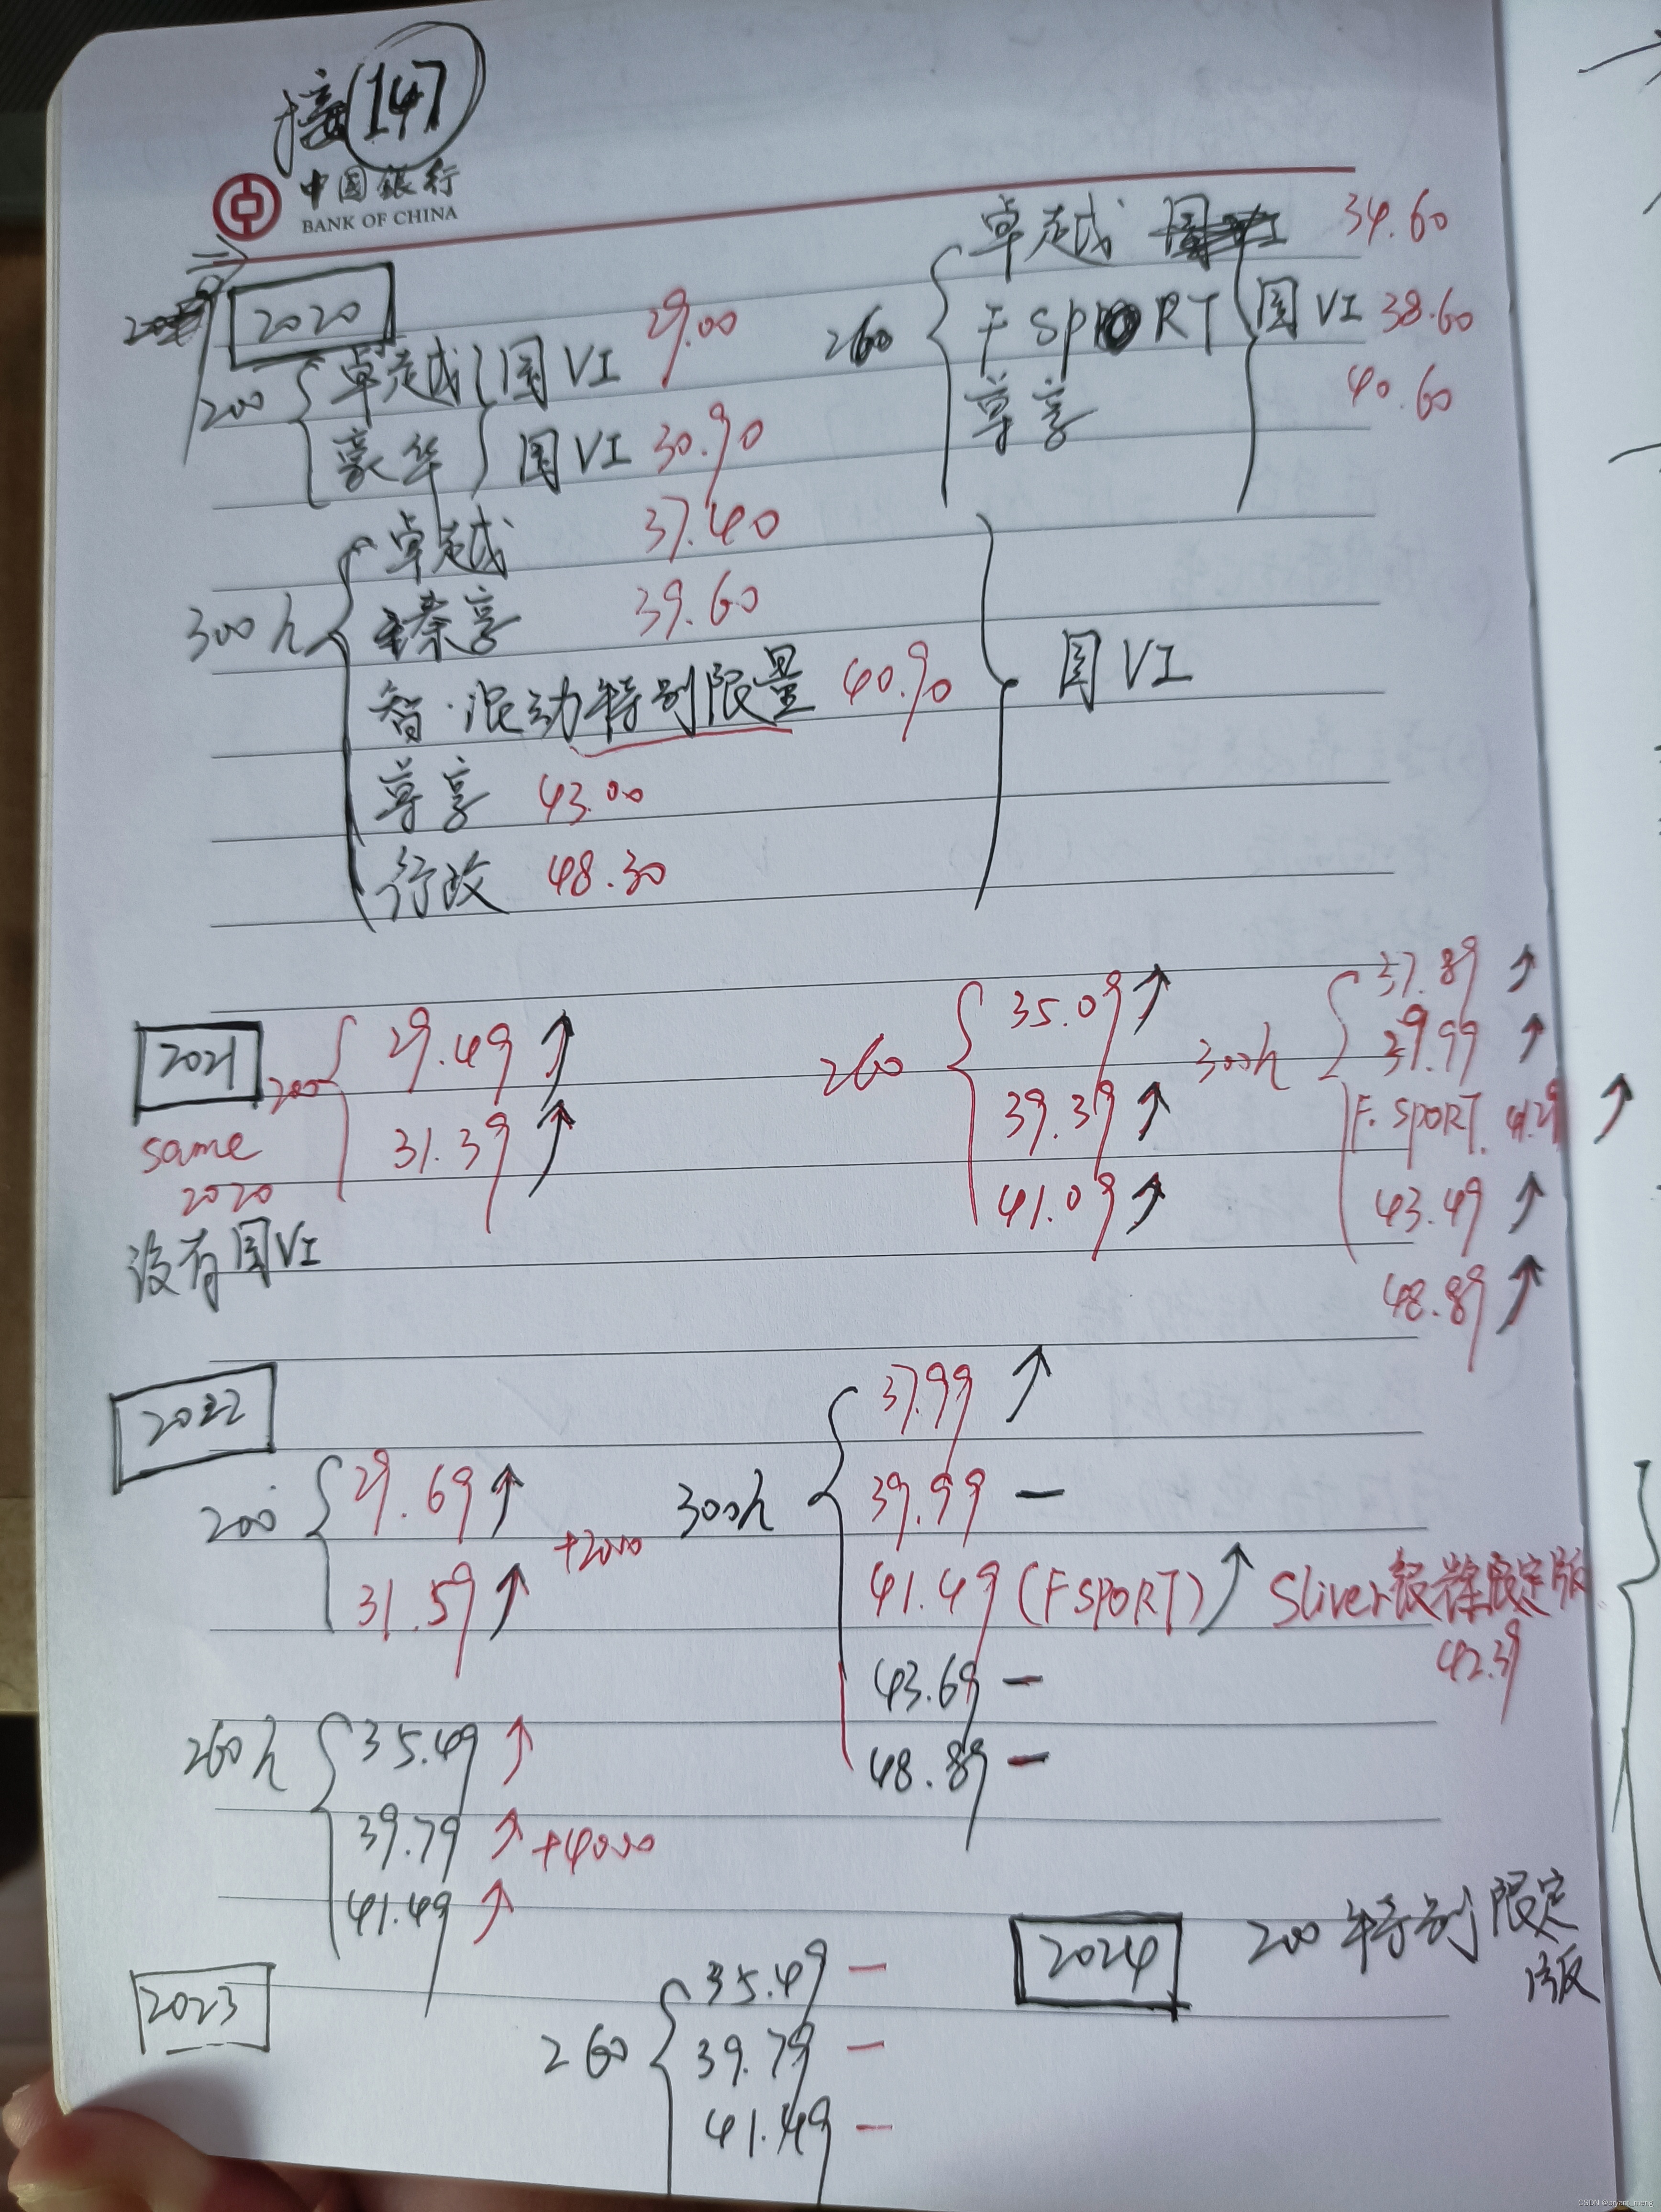 接 147
中国银行
BANK OF CHINA
2020
200 卓越 国VI 29.00
豪华 国VI 30.90
260 卓越 34.60
F SPORT 国VI 38.60
尊享 40.60
300h 卓越 37.40
臻享 39.60
智·混动特别限量 40.90
尊享 43.00
行政 48.30
国VI
2021
same
2020
没有国VI
200 29.49 ↑
31.39 ↑
260 35.09 ↑
39.39 ↑
41.09 ↑
300h 37.89 ↑
39.99 ↑
F. SPORT. 41.29 ↑
43.49 ↑
48.89 ↑
2022
200 29.69 ↑
31.59 ↑
+2000
300h 37.99 ↑
39.99 —
41.49 (F SPORT) ↑ Sliver银嶂限定版
42.39
43.69 —
48.89 —
260h 35.49 ↑
39.79 ↑ +4000
41.49 ↑
2023
260 35.49 —
39.79 —
41.49 —
2024 200 特别限定
版
CSDN @bryant_meng